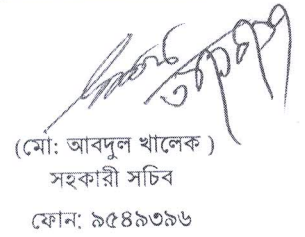 (মো: আবদুল খালেক )
সহকারী সচিব
ফোন: ৯৫৪৯৩৯৬